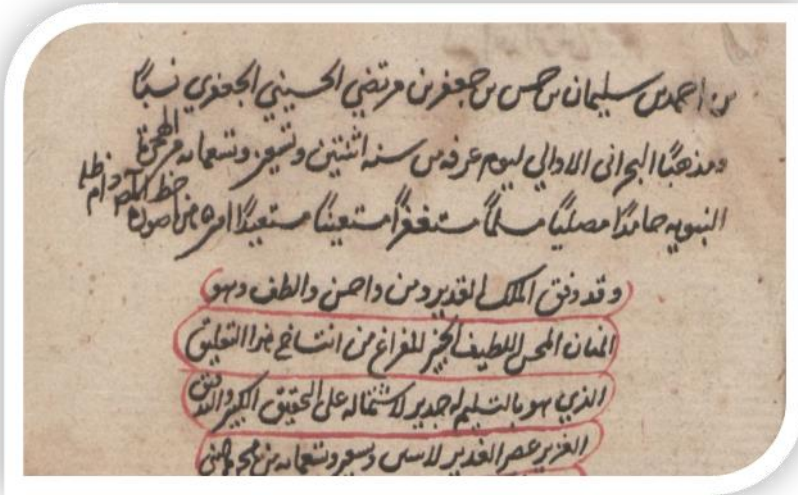 بن احمد بن سليمان بن حسن بن جعفر بن مرتضى الحسيني الجعفري نسبًا
ومذهبًا البحراني الاوالي ليوم عرفه من سنه اثنتين وتسعين وتسعمائه من الهجرة
النبويه حامدًا مصليًا مسلمًا مستغفرًا مستعينًا
وقد وفق الملك القدير ومن واحسن والطف وهو
المنان المحسن اللطيف الخبير للفراغ من انتساخ هذا التعليق
الذي هو بالتسليم له جدير لاشتماله على التحقيق الكثير والتدقيق
الغزير عصر الغدير